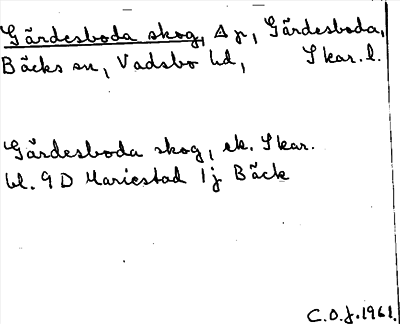 Gärdesboda skog, Δ p, Gärdesboda,
Bäcks sn, Vadsbo hd, Skar. l.
Gärdesboda skog, ek. Skar.
bl. 9 D Mariestad 1 j Bäck
C.O.J. 1961.